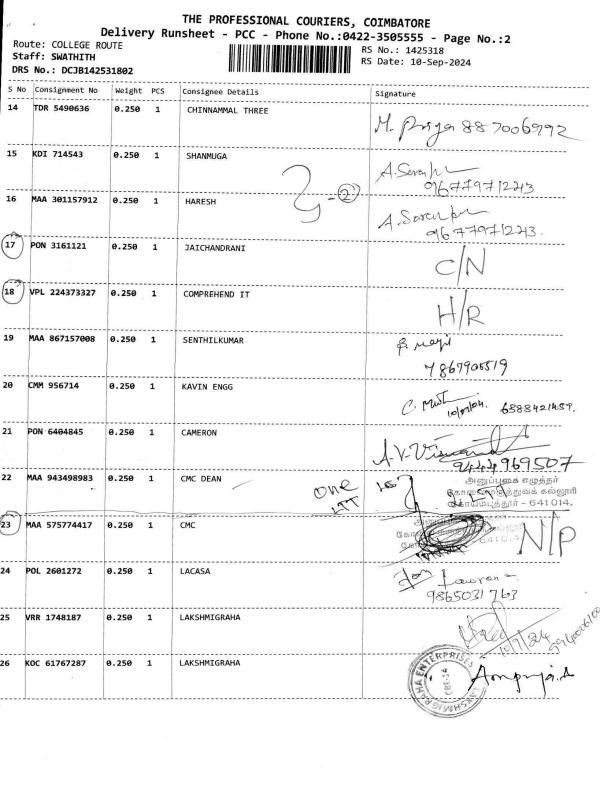 THE PROFESSIONAL COURIERS, COIMBATORE
Delivery Runsheet - PCC - Phone No.:0422-3505555 - Page No.:2
Route: COLLEGE ROUTE
Staff: SWATHITH
DRS No.: DCJB142531802
RS No.: 1425318
RS Date: 10-Sep-2024
S No Consignment No Weight PCS Consignee Details Signature
14 TDR 5490636 0.250 1 CHINNAMMAL THREE M. Priya 887006992
15 KDI 714543 0.250 1 SHANMUGA
9677971243
16 MAA 301157912 0.250 1 HARESH
2
9677971223.
17 PON 3161121 0.250 1 JAICHANDRANI C/N
18 VPL 224373327 0.250 1 COMPREHEND IT H/R
19 MAA 867157008 0.250 1 SENTHILKUMAR
7867905519
20 CMM 956714 0.250 1 KAVIN ENGG
21 PON 6404845 0.250 1 CAMERON
9444969507
22 MAA 943498983 0.250 1 CMC DEAN one
அனுப்புகை எழுத்தர்
கோவை மருத்துவக் கல்லூரி
கோயம்புத்தூர் - 641014.
23 MAA 575774417 0.250 1 CMC N/P
24 POL 2601272 0.250 1 LACASA
9865031763
25 VRR 1748187 0.250 1 LAKSHMIGRAHA
10/9/24
26 KOC 61767287 0.250 1 LAKSHMIGRAHA
LAKSHMIGRAHA ENTERPRISES
CBE-14